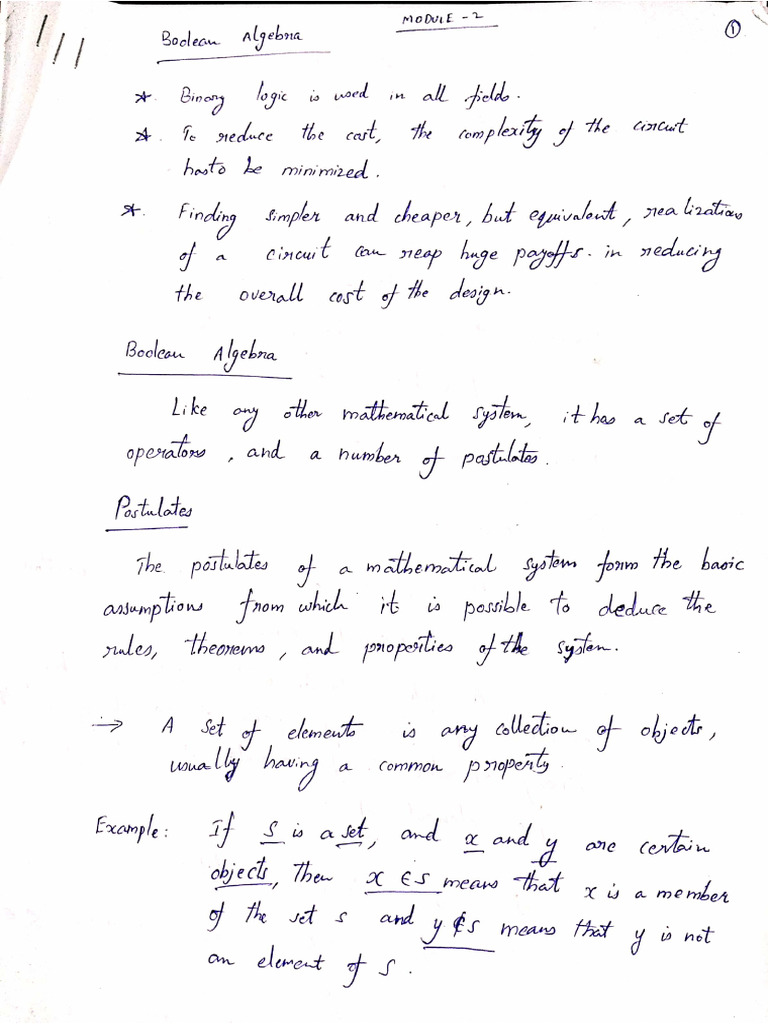 MODULE - 2
①
Boolean Algebra
* Binary logic is used in all fields.
* To reduce the cost, the complexity of the circuit
hasto be minimized.
* Finding simpler and cheaper, but equivalent, realizations
of a circuit can reap huge payoffs. in reducing
the overall cost of the design.
Boolean Algebra
Like any other mathematical system, it has a set of
operators, and a number of postulates.
Postulates
The postulates of a mathematical system form the basic
assumptions from which it is possible to deduce the
rules, theorems, and properities of the system.
→ A set of elements is any collection of objects,
usually having a common property.
Example: If S is a set, and x and y are certain
objects, Then x ∈ S means that x is a member
of the set s and y ∉ S means that y is not
an element of S.